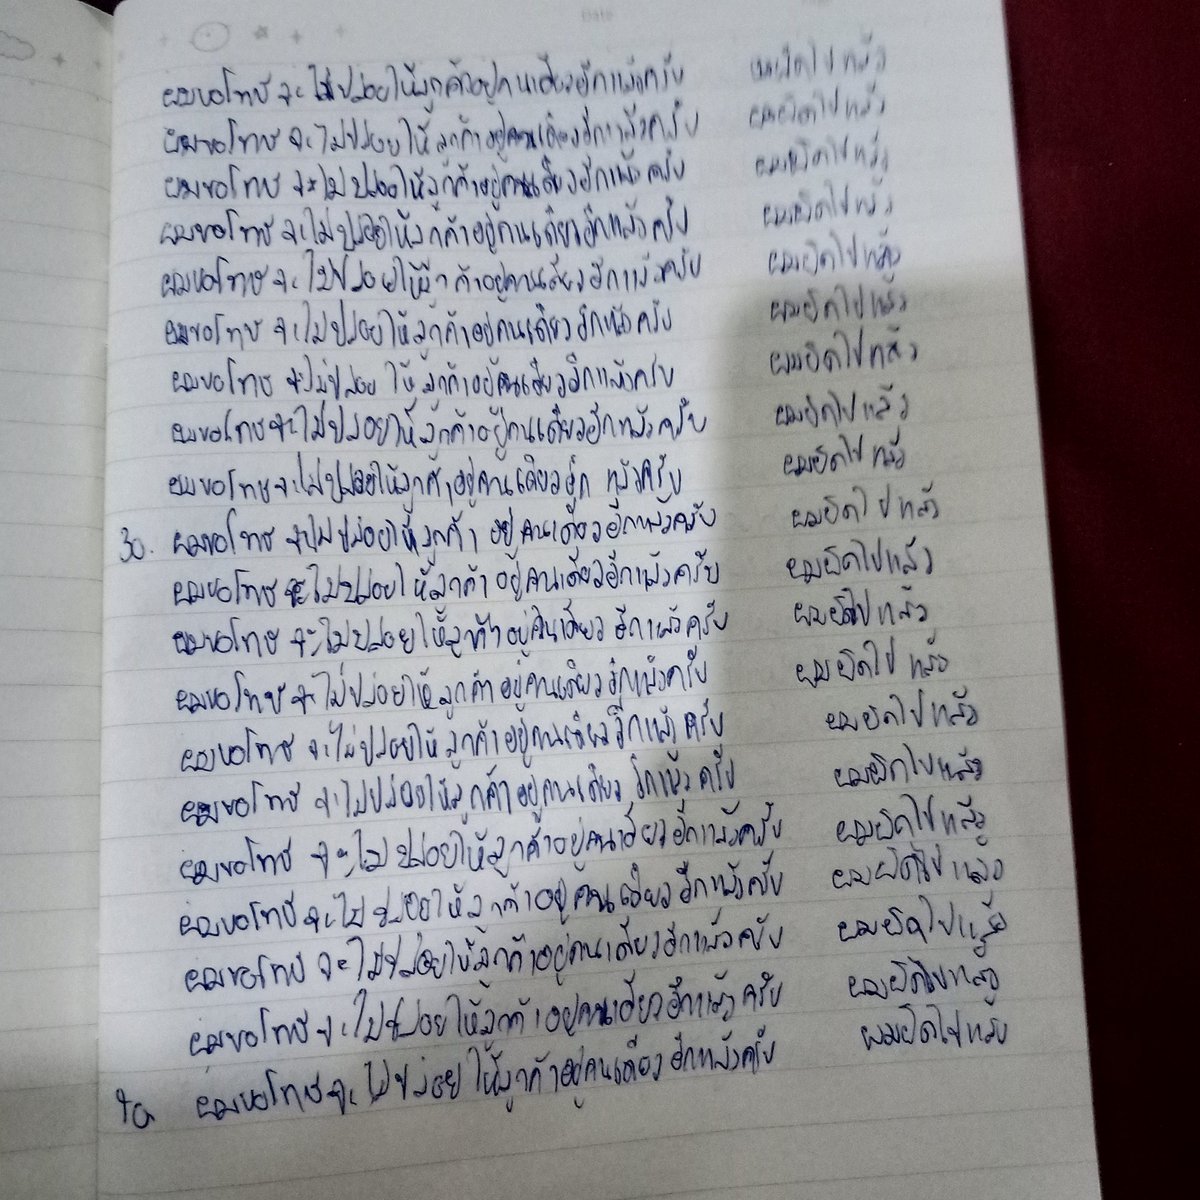 Date
ผมขอโทษ จะไม่ปล่อยให้ลูกค้าอยู่คนเดียวอีกแล้วครับ ผมผิดไปแล้ว
ผมขอโทษ จะไม่ปล่อยให้ลูกค้าอยู่คนเดียวอีกแล้วครับ ผมผิดไปแล้ว
ผมขอโทษ จะไม่ปล่อยให้ลูกค้าอยู่คนเดียวอีกแล้วครับ ผมผิดไปแล้ว
ผมขอโทษ จะไม่ปล่อยให้ลูกค้าอยู่คนเดียวอีกแล้วครับ ผมผิดไปแล้ว
ผมขอโทษ จะไม่ปล่อยให้ ค้าอยู่คนเดียวอีกแล้วครับ ผมผิดไปแล้ว
ผมขอโทษ จะไม่ปล่อยให้ลูกค้าอยู่คนเดียวอีกแล้วครับ ผมผิดไปแล้ว
ผมขอโทษ จะไม่ปล่อยให้ลูกค้าอยู่คนเดียวอีกแล้วครับ ผมผิดไปแล้ว
ผมขอโทษ จะไม่ปล่อยให้ลูกค้าอยู่คนเดียวอีกแล้วครับ ผมผิดไปแล้ว
ผมขอโทษ จะไม่ปล่อยให้ลูกค้าอยู่คนเดียวอีก แล้วครับ ผมผิดไปแล้ว
30. ผมขอโทษ จะไม่ปล่อยให้ลูกค้า อยู่คนเดียวอีกแล้วครับ ผมผิดไปแล้ว
ผมขอโทษ จะไม่ปล่อยให้ลูกค้า อยู่คนเดียวอีกแล้วครับ ผมผิดไปแล้ว
ผมขอโทษ จะไม่ปล่อยให้ลูกค้าอยู่คนเดียว อีกแล้วครับ ผมผิดไปแล้ว
ผมขอโทษ จะไม่ปล่อยให้ลูกค้า อยู่คนเดียวอีกแล้วครับ ผมผิดไปแล้ว
ผมขอโทษ จะไม่ปล่อยให้ลูกค้าอยู่คนเดียวอีกแล้วครับ ผมผิดไปแล้ว
ผมขอโทษ จะไม่ปล่อยให้ลูกค้าอยู่คนเดียว อีกแล้วครับ ผมผิดไปแล้ว
ผมขอโทษ จะไม่ปล่อยให้ลูกค้าอยู่คนเดียวอีกแล้วครับ ผมผิดไปแล้ว
ผมขอโทษ จะไม่ปล่อยให้ลูกค้าอยู่คนเดียวอีกแล้วครับ ผมผิดไปแล้ว
ผมขอโทษ จะไม่ปล่อยให้ลูกค้าอยู่คนเดียวอีกแล้วครับ ผมผิดไปแล้ว
ผมขอโทษ จะไม่ปล่อยให้ลูกค้าอยู่คนเดียวอีกแล้วครับ ผมผิดไปแล้ว
ผมขอโทษจะ ไม่ปล่อย ให้ลูกค้าอยู่คนเดียว อีกแล้วครับ ผมผิดไปแล้ว